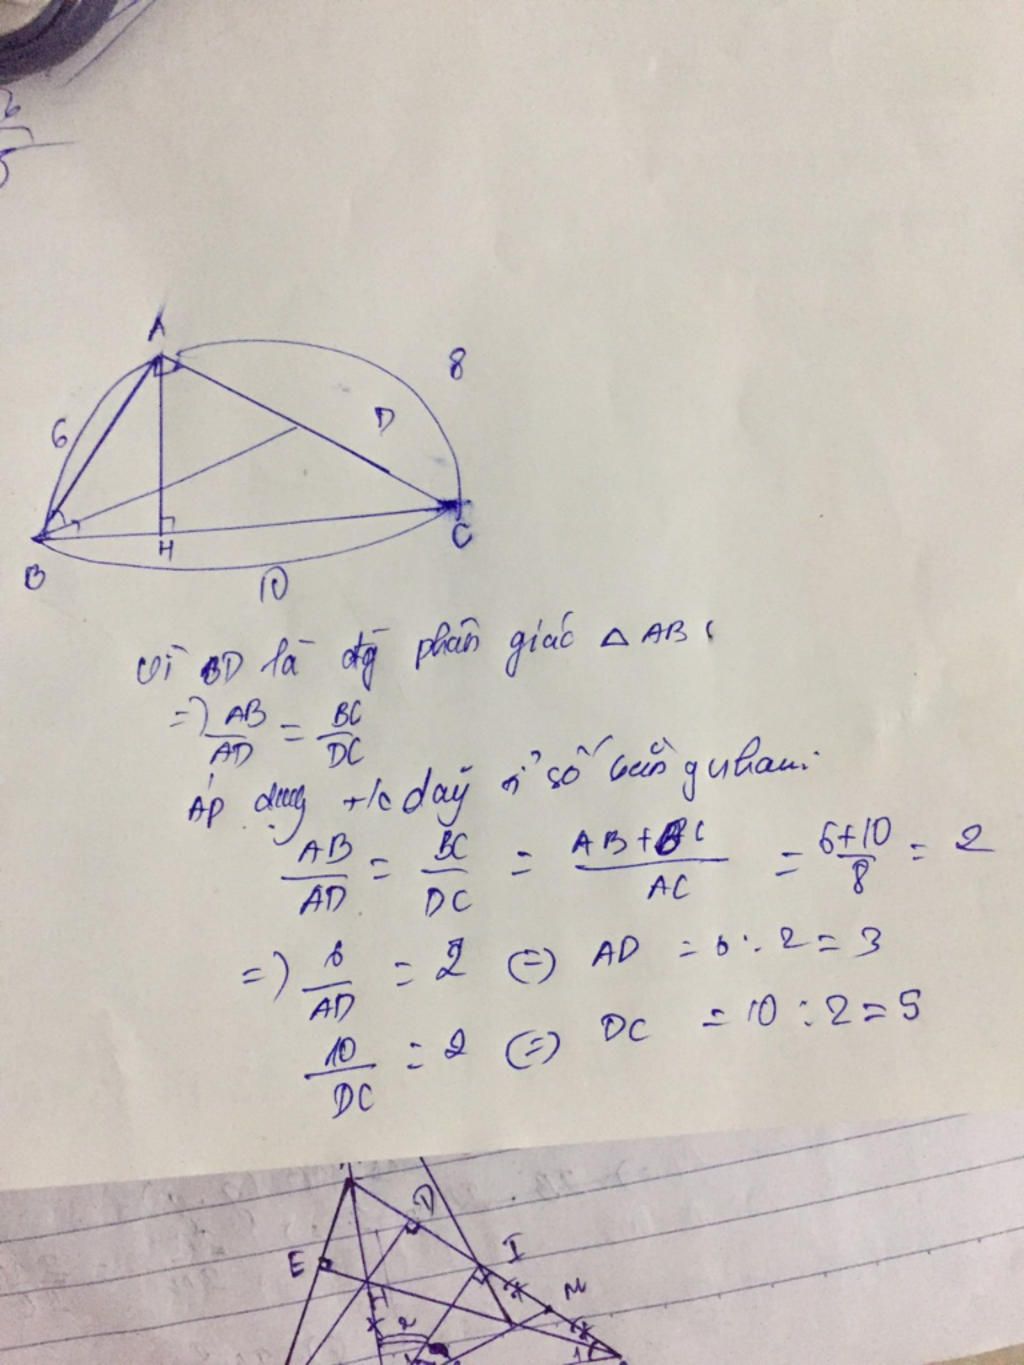 A
8
6
D
H
C
B
10
Vì BD là đg phân giác △ ABC
=) AB/AD = BC/DC
Áp dụng t/c dãy tỉ số bằng nhau:
AB/AD = BC/DC = AB+BC/AC = 6+10/8 = 2
=) 6/AD = 2 (=) AD = 6:2=3
10/DC = 2 (=) DC = 10:2=5
D
E
I
M
H
2
1